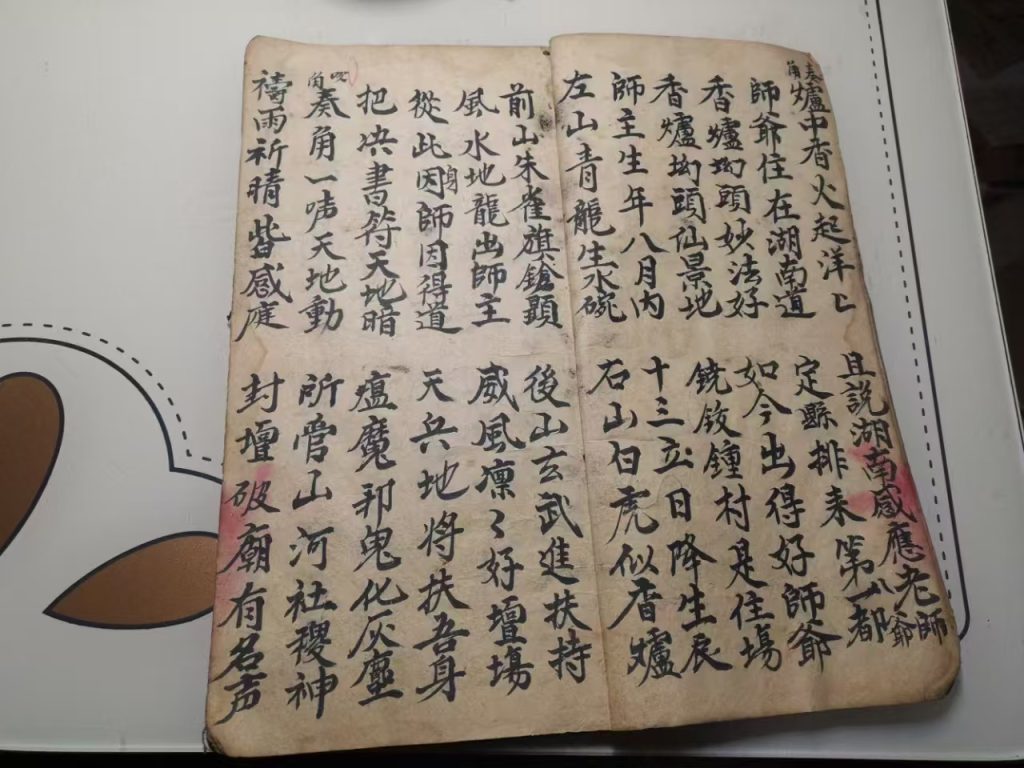 奏角
爐中香火起洋〻 且說湖南感應老師爺
師爺住在湖南道 定縣排来第一都
香爐坳頭妙法好 如今出得好師爺
香爐坳頭仙景地 鐃鈸鍾村是住場
師主生年八月内 十三立日降生辰
左山青龍生水碗 石山白虎似香爐
前山朱雀旗鎗顕 後山玄武進扶持
風水地龍出師主 威風凛〻好壇塲
從此因身師因得道 天兵地将扶吾身
把决書符天地暗 瘟魔邪鬼化灰塵
吹角
奏角一声天地動 所管山河社稷神
禱雨祈晴皆感 封壇破廟有名声